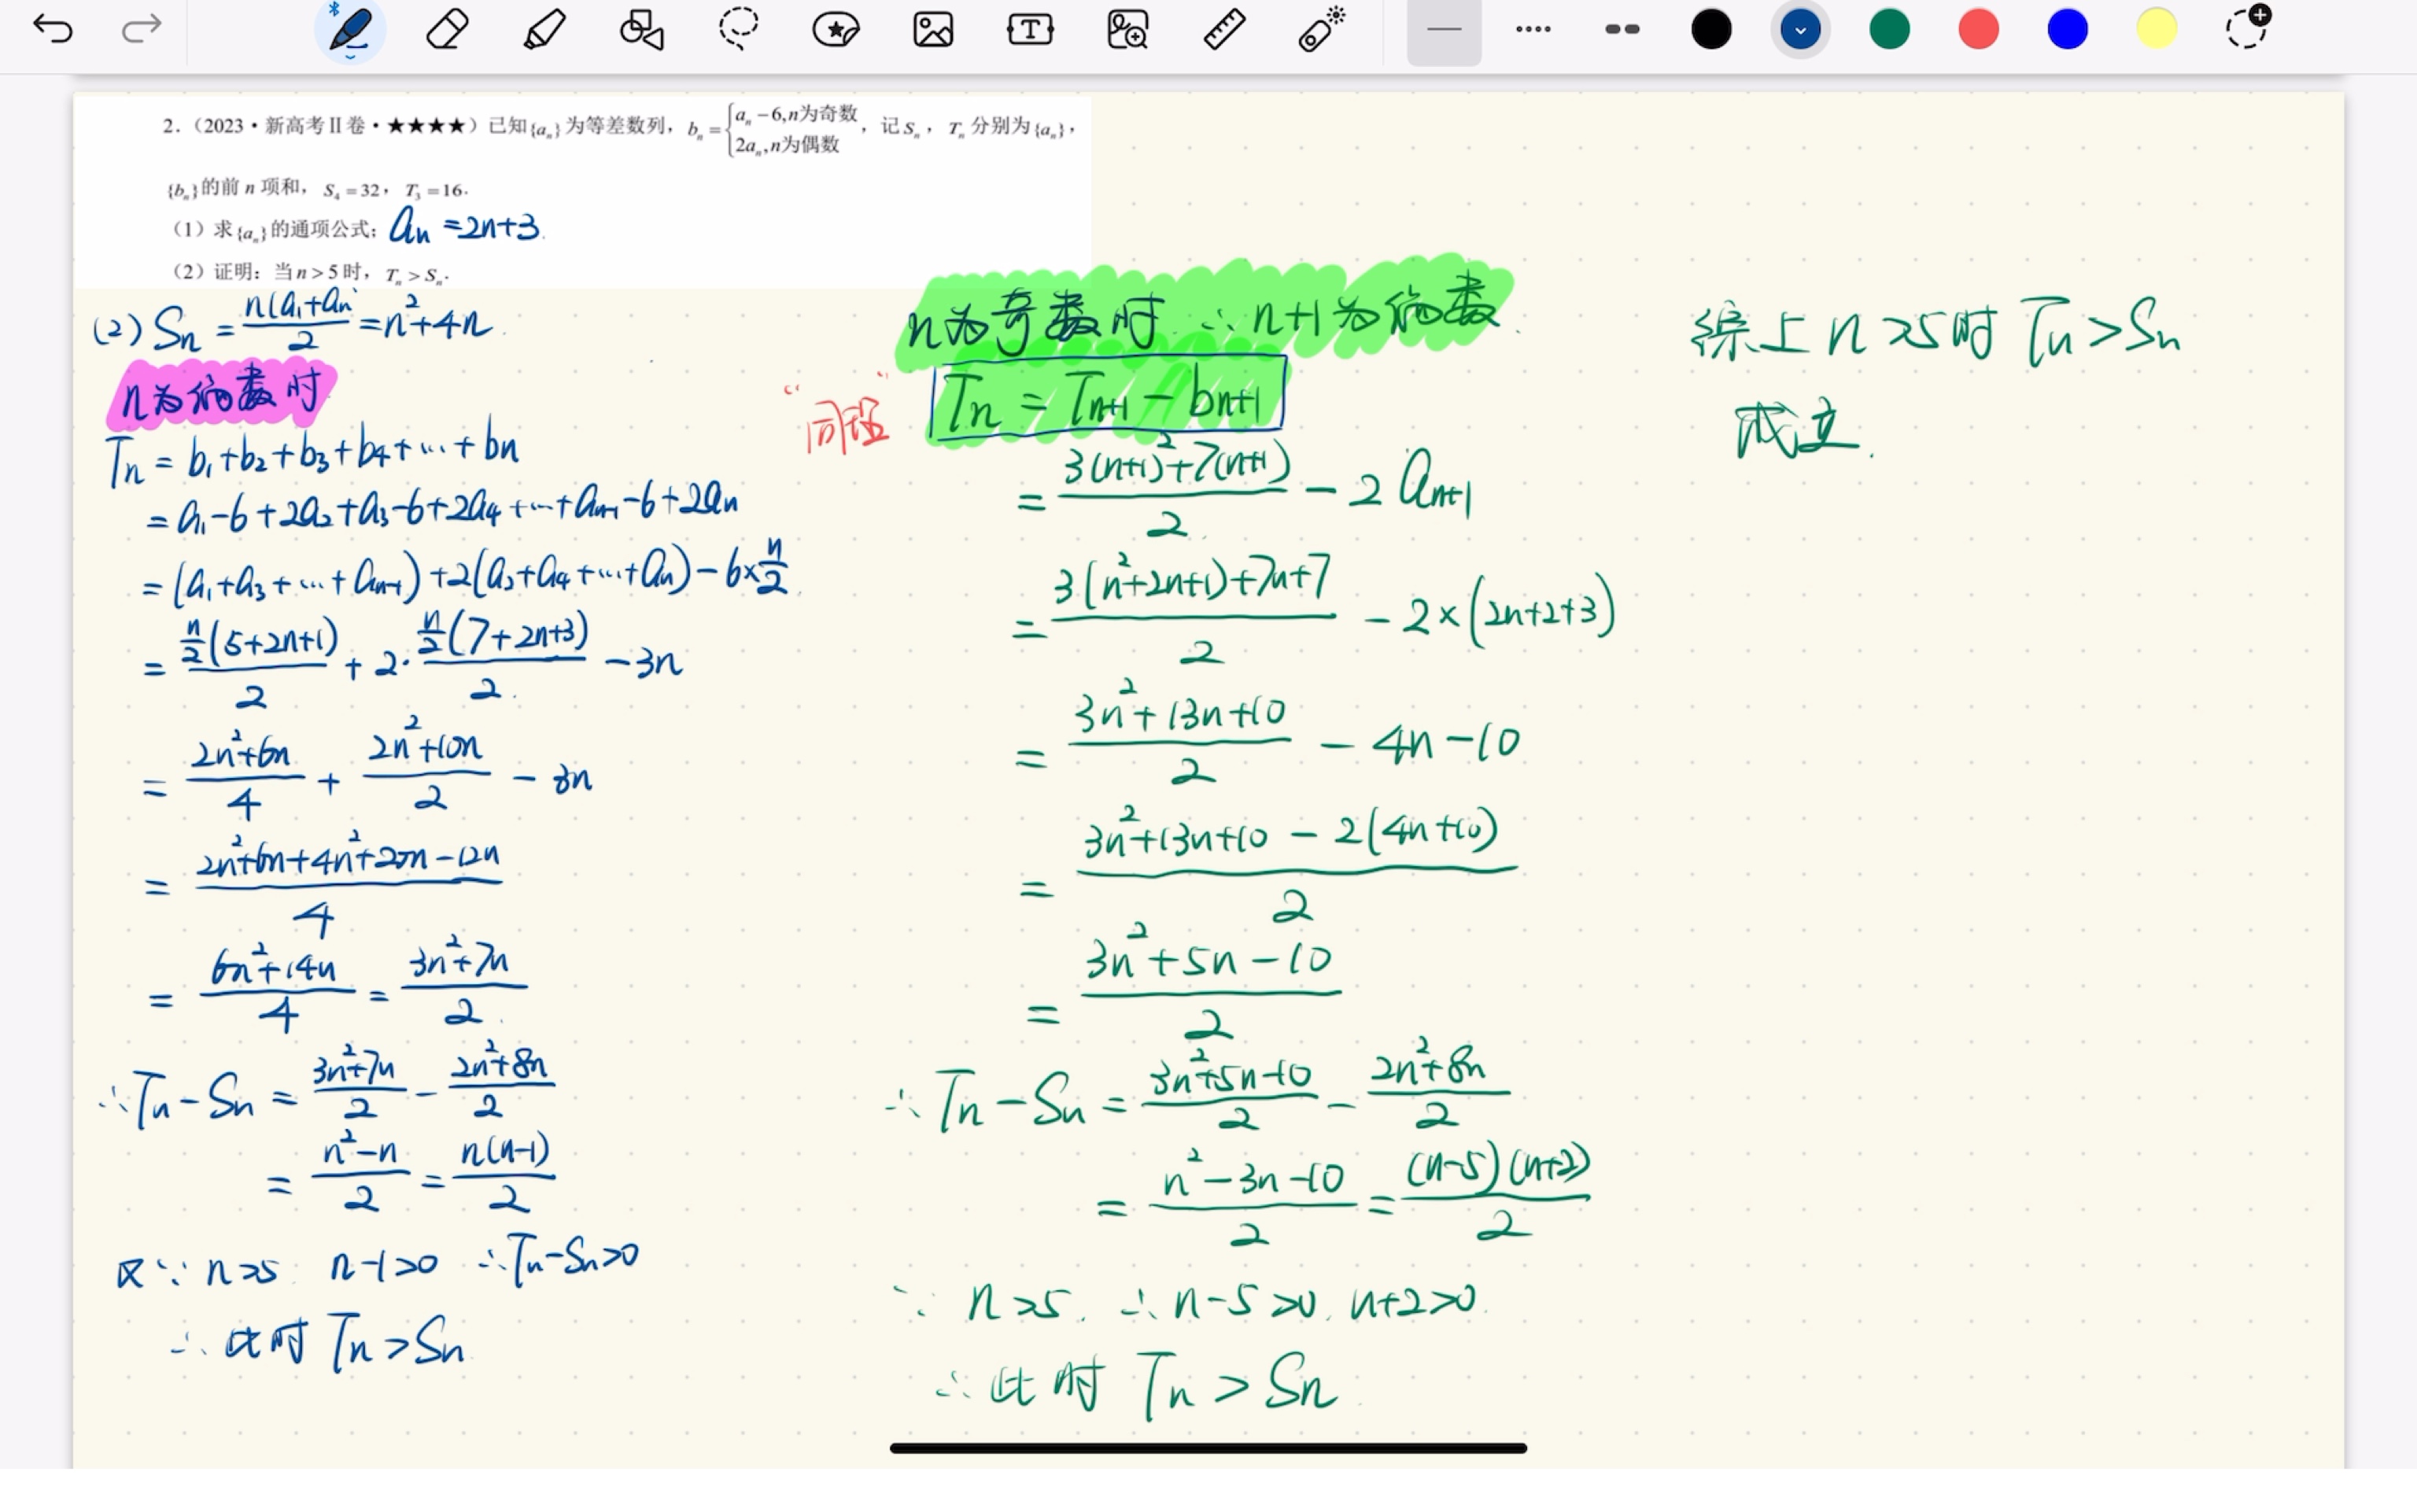 2.（2023·新高考Ⅱ卷·★★★★）已知{aₙ}为等差数列，bₙ={aₙ−6,n为奇数 2aₙ,n为偶数，记Sₙ，Tₙ分别为{aₙ}，
{bₙ}的前 n 项和，S₄=32，T₃=16.
（1）求{aₙ}的通项公式; aₙ=2n+3.
（2）证明：当n>5时，Tₙ>Sₙ.
(2) Sₙ = n(a₁+aₙ)/2 = n²+4n.
n为偶数时
Tₙ = b₁+b₂+b₃+b₄+…+bₙ
= a₁-6+2a₂+a₃-6+2a₄+…+aₙ₋₁-6+2aₙ
= (a₁+a₃+…+aₙ₋₁)+2(a₂+a₄+…+aₙ)-6×n/2
= n/2(5+2n+1)/2 + 2·n/2(7+2n+3)/2 -3n
= (2n²+6n)/4 + (2n²+10n)/2 - 3n
= (2n²+6n+4n²+20n-12n)/4
= (6n²+14n)/4 = (3n²+7n)/2
∴Tₙ-Sₙ = (3n²+7n)/2 - (2n²+8n)/2
= (n²-n)/2 = n(n-1)/2
又∵ n>5 n-1>0 ∴Tₙ-Sₙ>0
∴此时 Tₙ>Sₙ
n为奇数时 ∴n+1为偶数.
Tₙ = Tₙ₊₁ - bₙ₊₁
= (3(n+1)²+7(n+1))/2 - 2aₙ₊₁
= (3(n²+2n+1)+7n+7)/2 - 2×(2n+2+3)
= (3n²+13n+10)/2 - 4n-10
= (3n²+13n+10 - 2(4n+10))/2
= (3n²+5n-10)/2
∴Tₙ-Sₙ = (3n²+5n-10)/2 - (2n²+8n)/2
= (n²-3n-10)/2 = (n-5)(n+2)/2
∵ n>5. ∴n-5>0, n+2>0.
∴此时 Tₙ>Sₙ
综上 n>5时 Tₙ>Sₙ
成立.